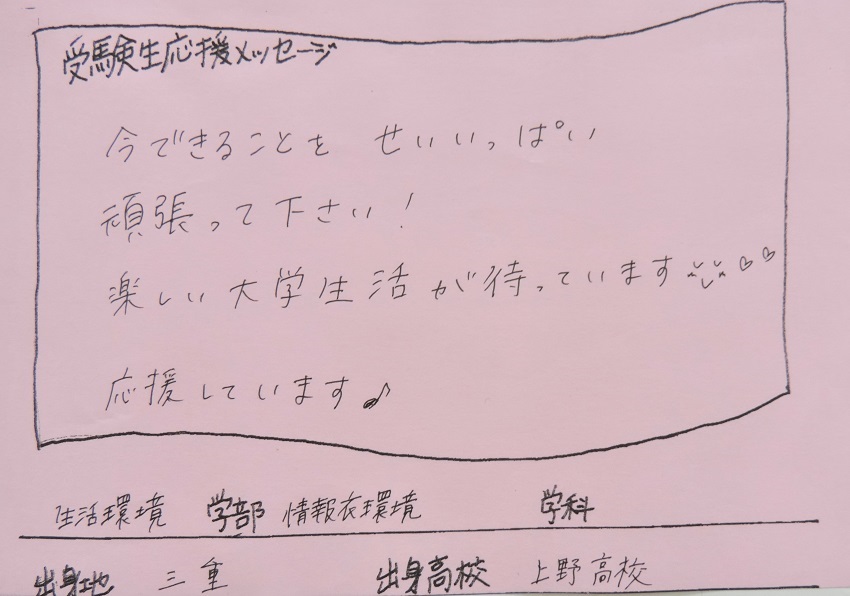 受験生応援メッセージ
今できることを せいいっぱい
頑張って下さい!
楽しい大学生活が待っています♡♡
応援しています♪
生活環境 学部 情報衣環境 学科
出身地 三重 出身高校 上野高校